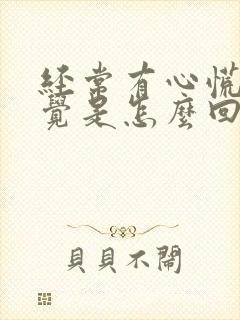 經常有心慌
覺是怎麼回
貝貝不鬧